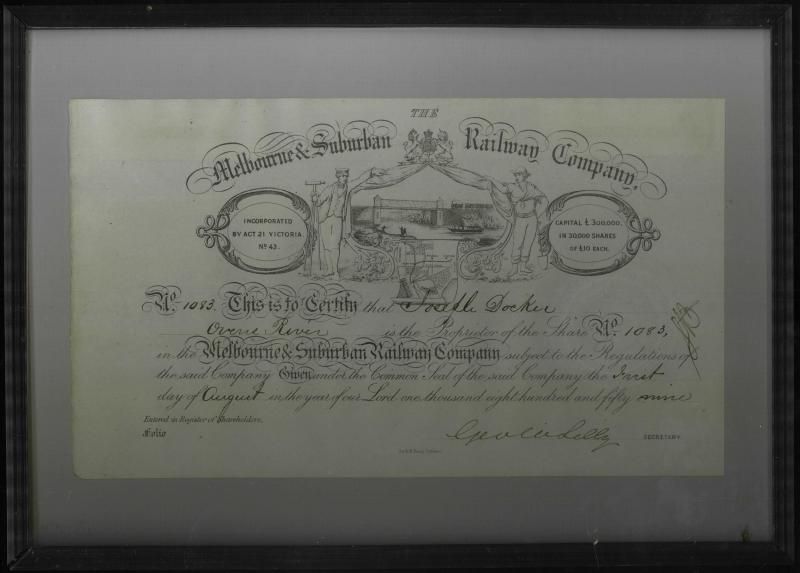 THE
Melbourne & Suburban Railway Company,
INCORPORATED
BY ACT 21 VICTORIA.
No 43.
CAPITAL £300,000.
IN 30,000 SHARES
OF £10 EACH.
No. 1083. This is to Certify that Joseph Docker
Ovens River is the Proprietor of the Share No. 1083,
in the Melbourne & Suburban Railway Company subject to the Regulations of
the said Company Given under the Common Seal of the said Company the First
day of August in the year of our Lord one thousand eight hundred and fifty nine
Entered in Register of Shareholders,
Folio
SECRETARY.